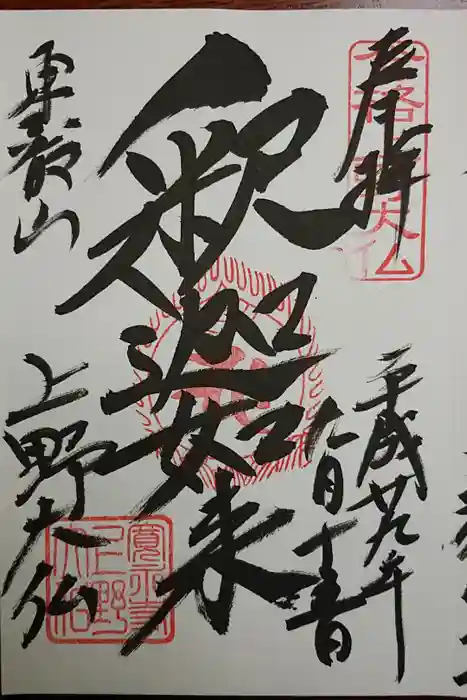 奉拝
平成廿九年
月十日
釈迦如来
東叡山
上野大仏
寛永寺
上野
大仏